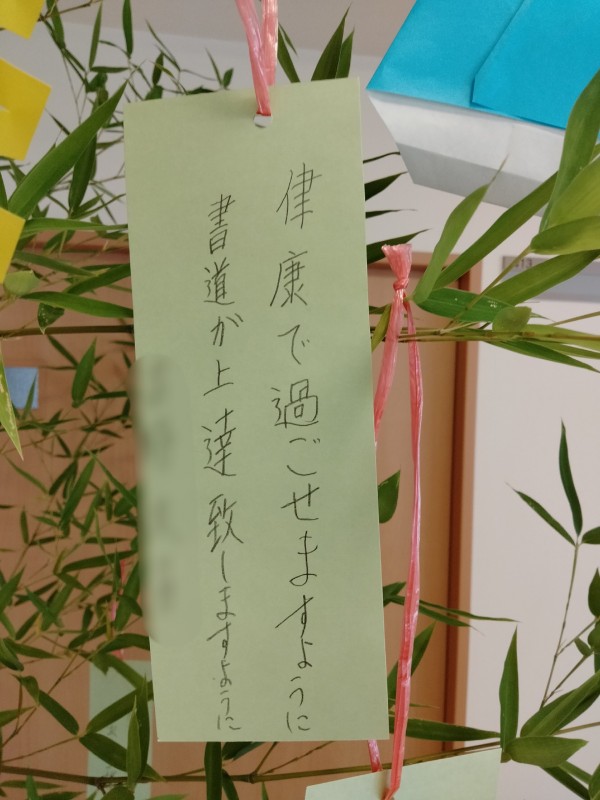 健康で過ごせますように
書道が上達致しますように